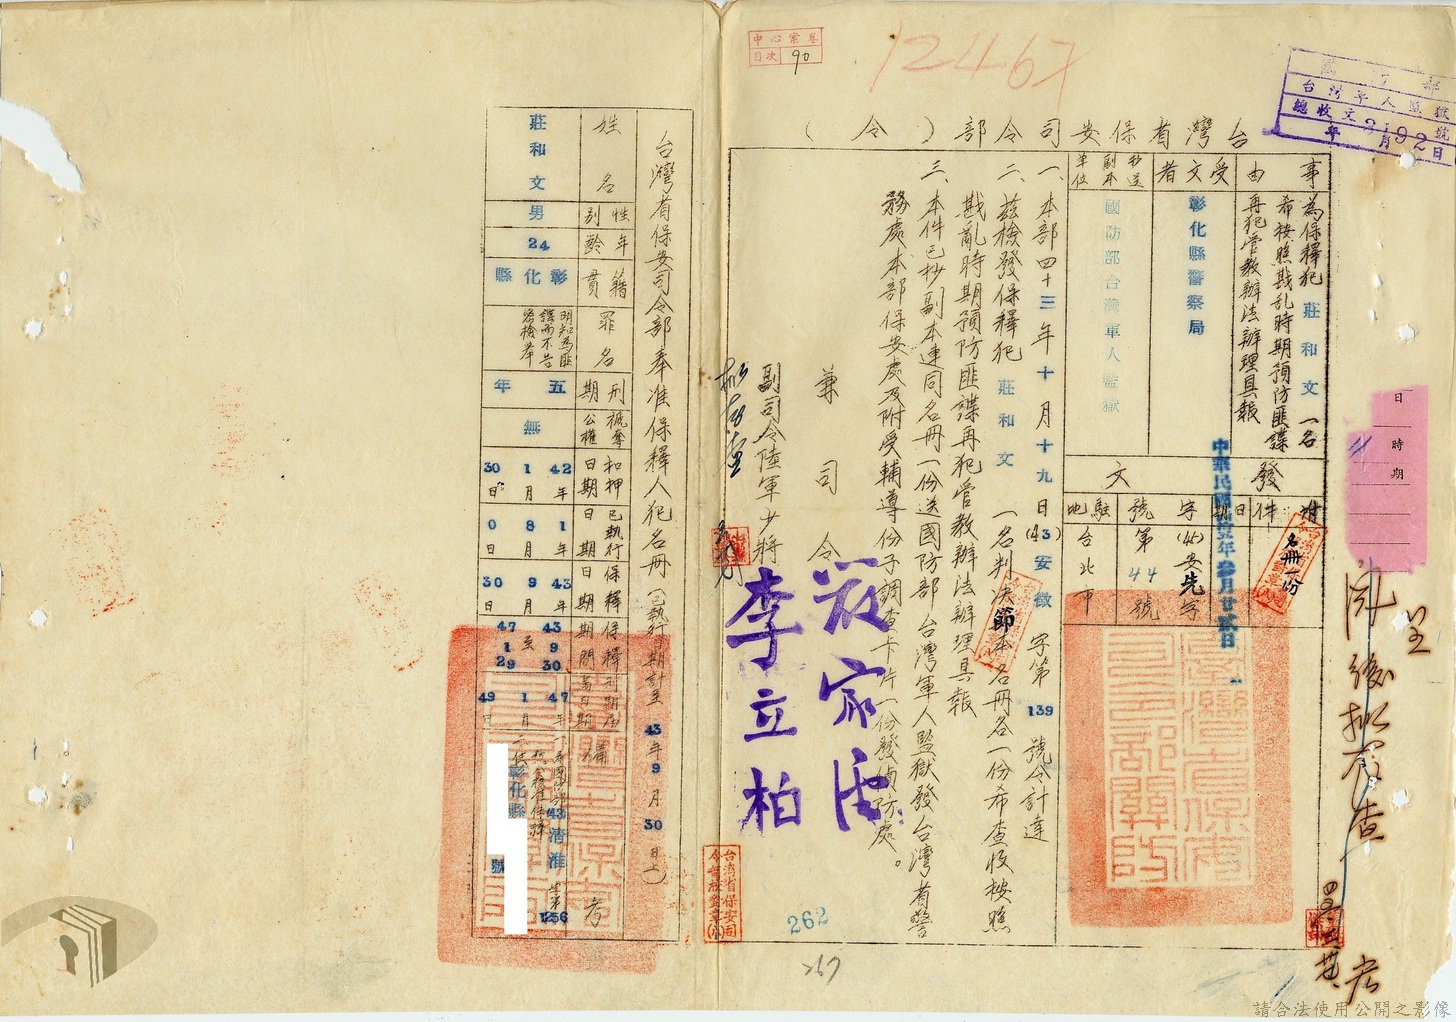 中心案卷
目次 90
12467
台灣軍人監獄
總收文 號
年 月 日
台灣省保安司令部(令)
事由
為保釋犯 莊和文 一名
希按照戡亂時期預防匪諜
再犯管教辦法辦理具報
受文者
彰化縣警察局
抄送副本單位
國防部台灣軍人監獄
發文
附件
名冊一份
日期
中華民國 年 月廿 日
字號
安先字
第44號
駐地
台北市
一、本部四十三年十月十九日(43)安徵字第139號令計達
二、茲檢發保釋犯 莊和文 一名判決節本名冊各一份希查收按照
戡亂時期預防匪諜再犯管教辦法辦理具報
三、本件已抄副本連同名冊一份送國防部台灣軍人監獄發台灣省警
務處本部保安處及附受輔導份子調查卡片一份發偵防處。
兼司令
副司令陸軍少將
李立柏
262
267
台灣省保安司令部奉准保釋人犯名冊(已執行期計至43年9月30日止)
姓名 莊和文
性別 男
年齡 24
籍貫 彰化縣
罪名 明知為匪諜而不告密檢舉
刑期 五年
褫奪公權 無
扣押日期 42年1月30日
已執行日期 1年8月0日
保釋日期 43年9月30日
保釋期間 43 9 30 至 47 1 29
刑期屆滿日期 47年1月49日
備考
彰化縣
號
清准
1256
日 時 期
呈
閱後擬存查
請合法使用公開之影像